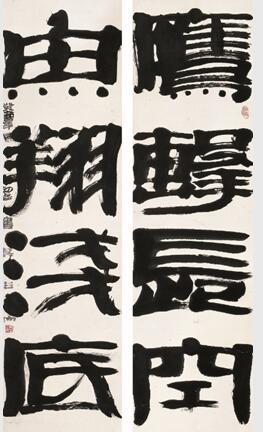 鷹擊長空
魚翔淺底